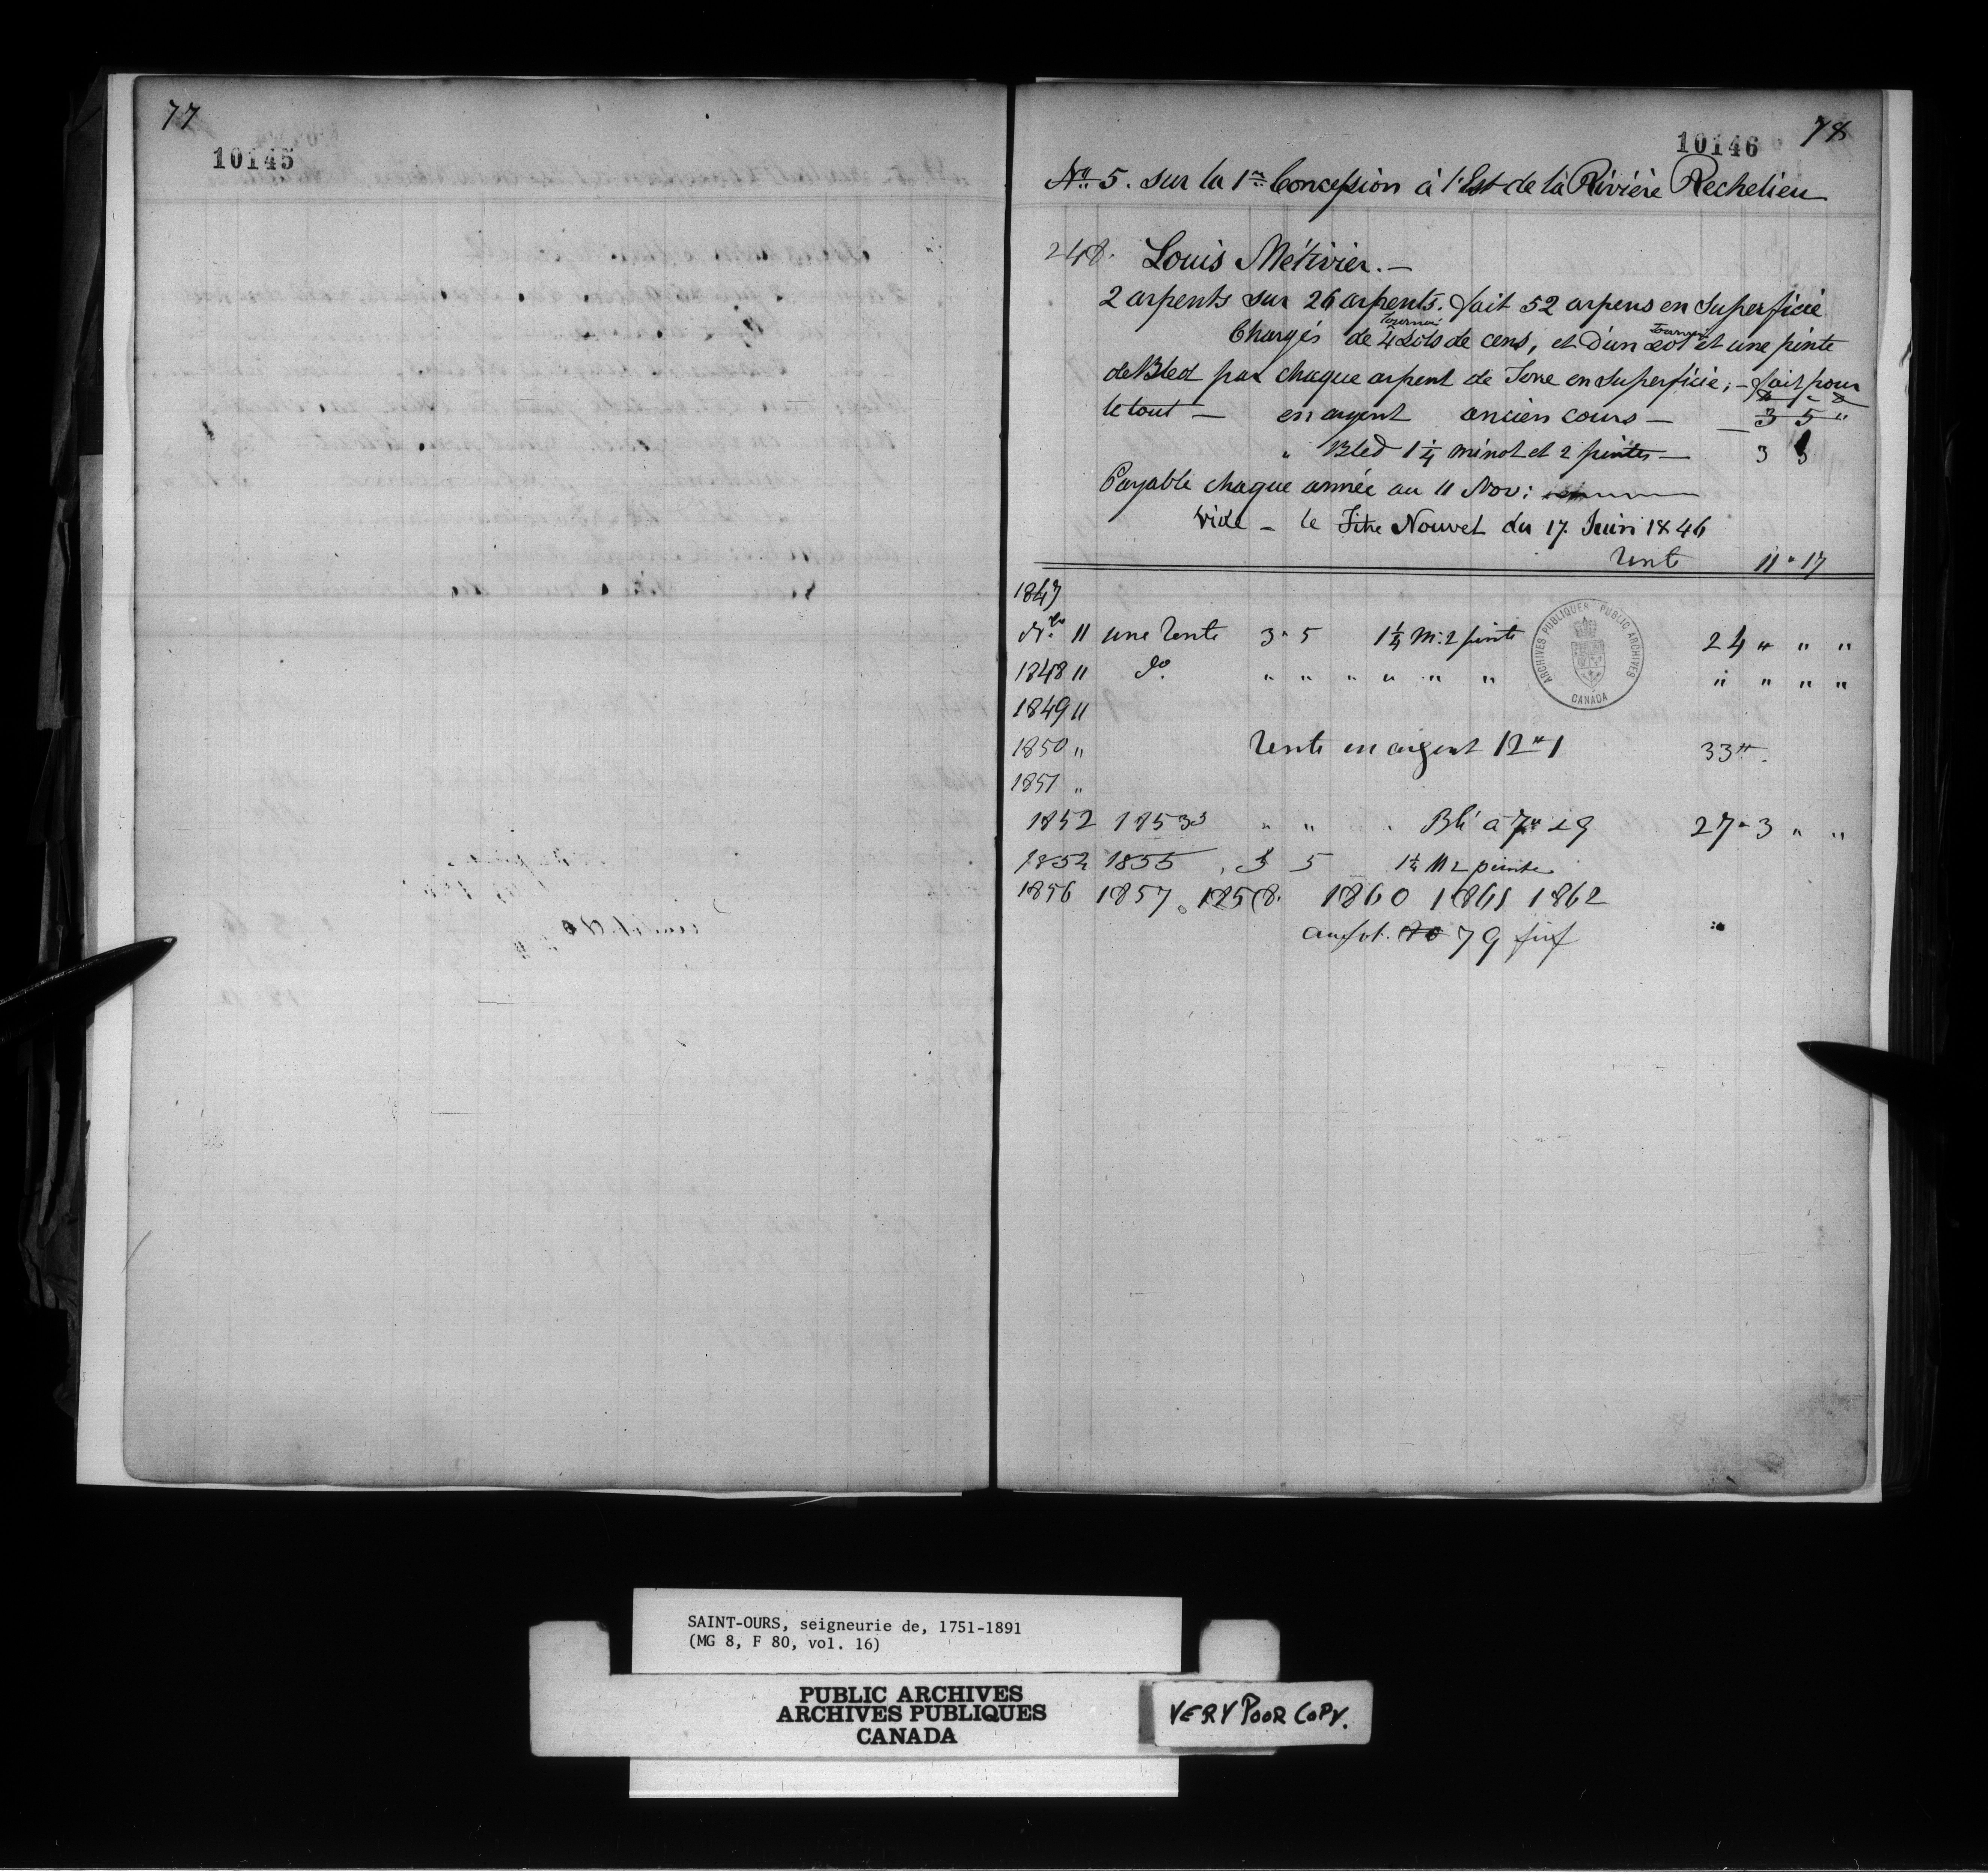 77
10145
10146
78
No. 5. sur la 1re Concession à l'Est de la Rivière Rechelieu
248. Louis Métivier. —
2 arpents sur 26 arpents. fait 52 arpens en Superficie
Chargés de 4 Sols tournois de cens, et d'un sol tournois et une pinte
de Bled par chaque arpent de Terre en Superficie; — fait pour
le tout — en argent ancien cours — 3 5 "
" Bled 1 1/4 minot et 2 pintes — 3
Payable chaque année au 11 Nov:
vide — le Titre Nouvel du 17 Juin 1846
Rente 11 " 17
1847
Nbe 11 une Rente 3 " 5 1 1/4 M: 2 pinte 24 " " "
1848 11 do. " " " " " " " " " "
1849 11
1850 " Rente en argent 12 " 1 33 "
1851 "
1852 1853 " " " Blé à 7 " 19 27 " 3 " "
1854 1855 , 3 5 1 1/4 M 2 pinte
1856 1857. 1858. 1860 1861 1862
au fol. 79
ARCHIVES PUBLIQUES PUBLIC ARCHIVES
CANADA
SAINT-OURS, seigneurie de, 1751-1891
(MG 8, F 80, vol. 16)
PUBLIC ARCHIVES
ARCHIVES PUBLIQUES
CANADA
VERY POOR COPY.